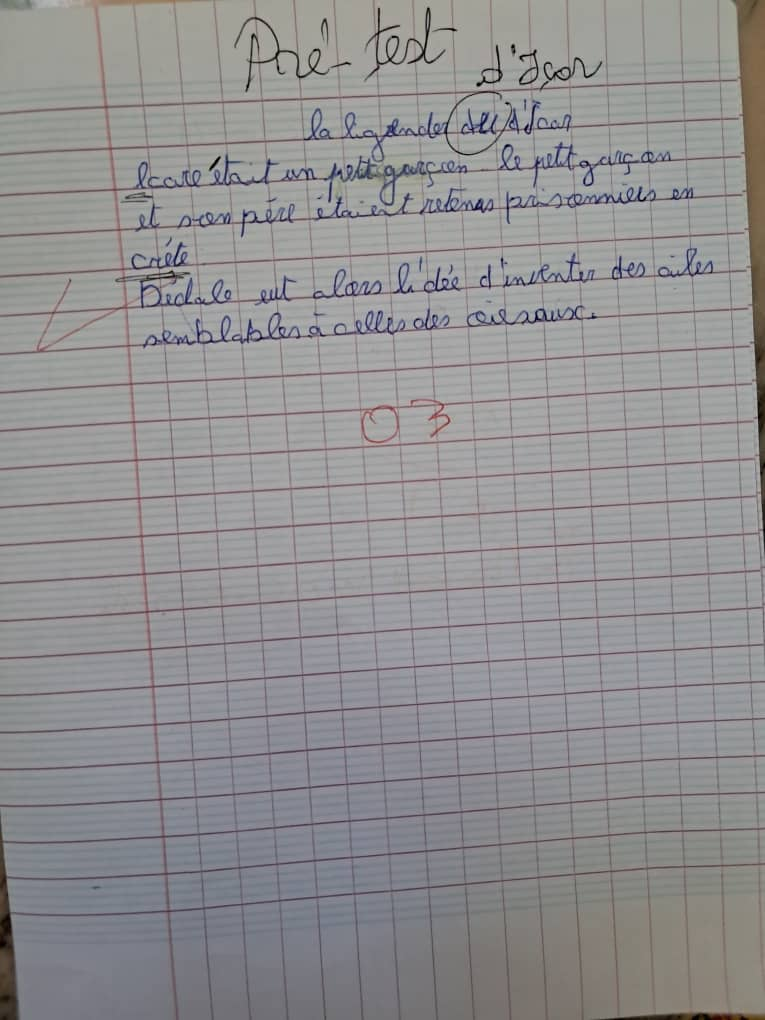 Pré-test
d'Içar
la ligende des d'Icar
Icare était un petit garçcon. le petit garçon
et son père étaient retenas prisonniers en
crète
Dédale eut alors l'idée d'inventer des ailes
semblables à celles des oiseaux.
03